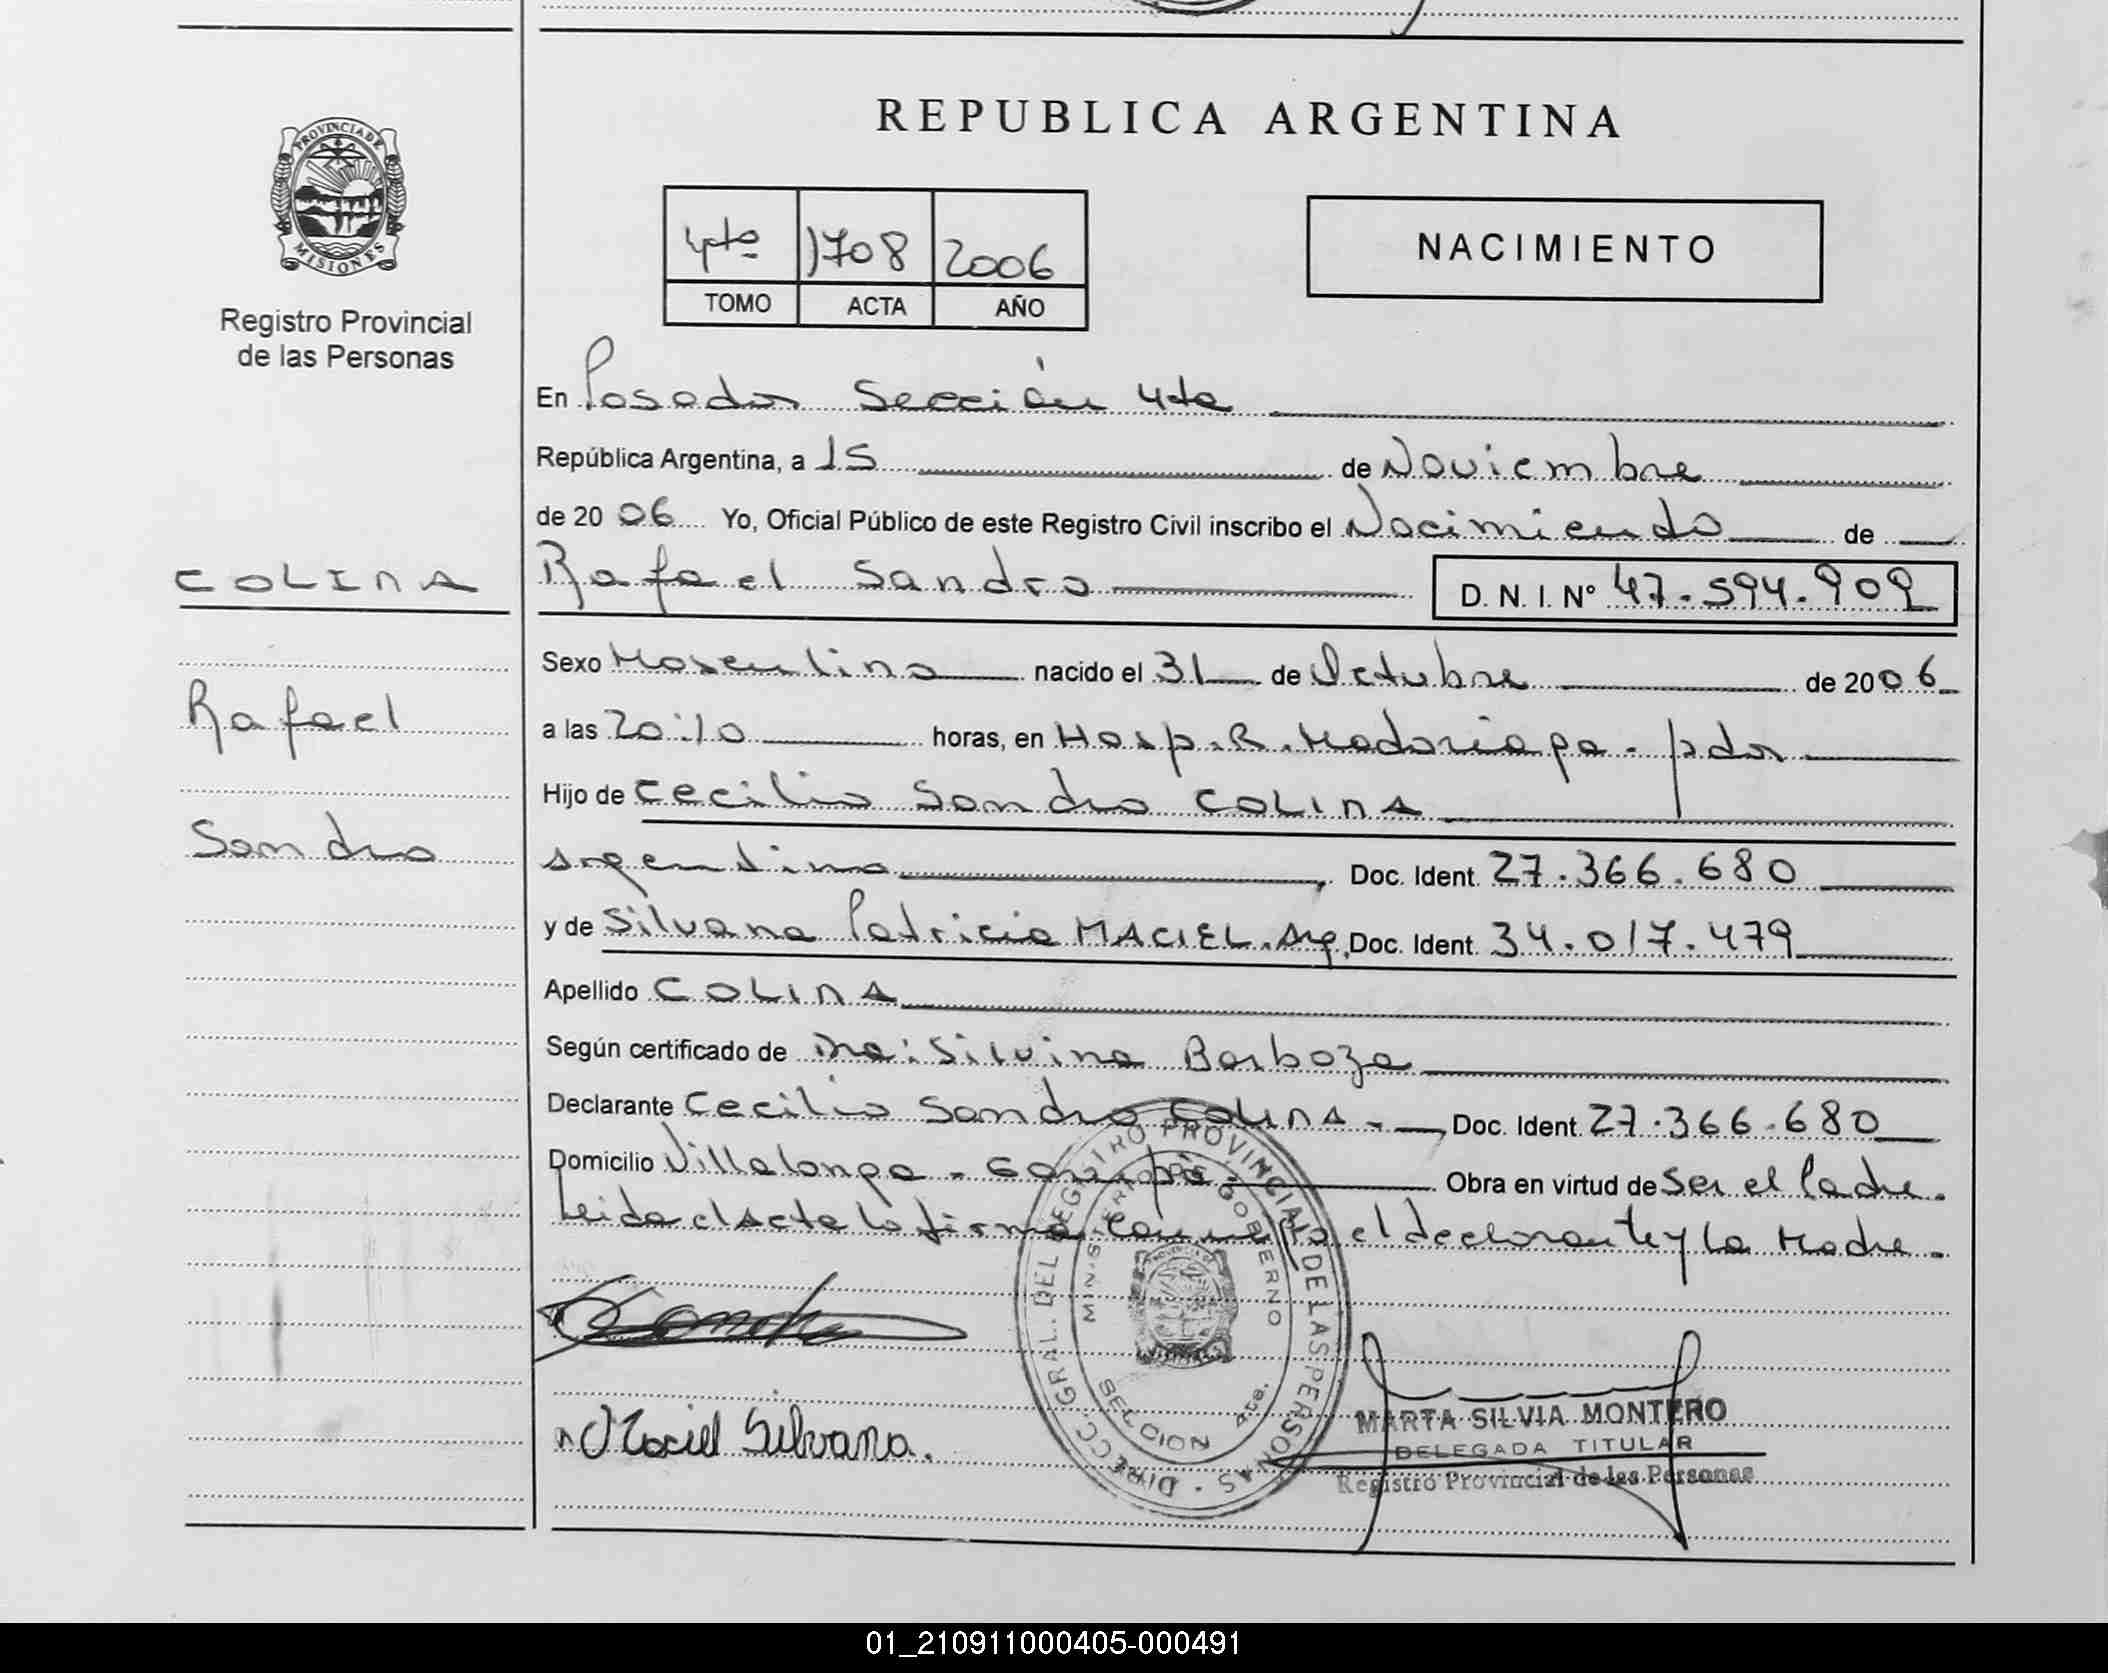 REPUBLICA ARGENTINA
PROVINCIA DE
MISIONES
Registro Provincial
de las Personas
4to 1708 2006
TOMO ACTA AÑO
NACIMIENTO
En Posadas Sección 4ta
República Argentina, a 15 de Noviembre
de 20 06 Yo, Oficial Público de este Registro Civil inscribo el Nacimiento de
COLINA
Rafael Sandro D. N. I. Nº 47.594.909
Sexo Masculino nacido el 31 de Octubre de 2006
Rafael
a las 20:10 horas, en Hosp. R. Madariaga - pdas
Hijo de Cecilio Sandro COLINA
Sandro
argentino, Doc. Ident. 27.366.680
y de Silvana Patricia MACIEL. Arg. Doc. Ident. 34.017.479
Apellido COLINA
Según certificado de Dra: Silvina Barboza
Declarante Cecilio Sandro COLINA - , Doc. Ident. 27.366.680
Domicilio Villalonga - Garupá - Obra en virtud de Ser el Padre.
Leida el Acta la firma conmigo el declarante y la Madre.
DIRECC. GRAL. DEL REGISTRO PROVINCIAL DE LAS PERSONAS
MINISTERIO DE GOBIERNO
SECCION 4ta.
Maciel Silvana.
MARTA SILVIA MONTERO
DELEGADA TITULAR
Registro Provincial de las Personas
01_210911000405-000491